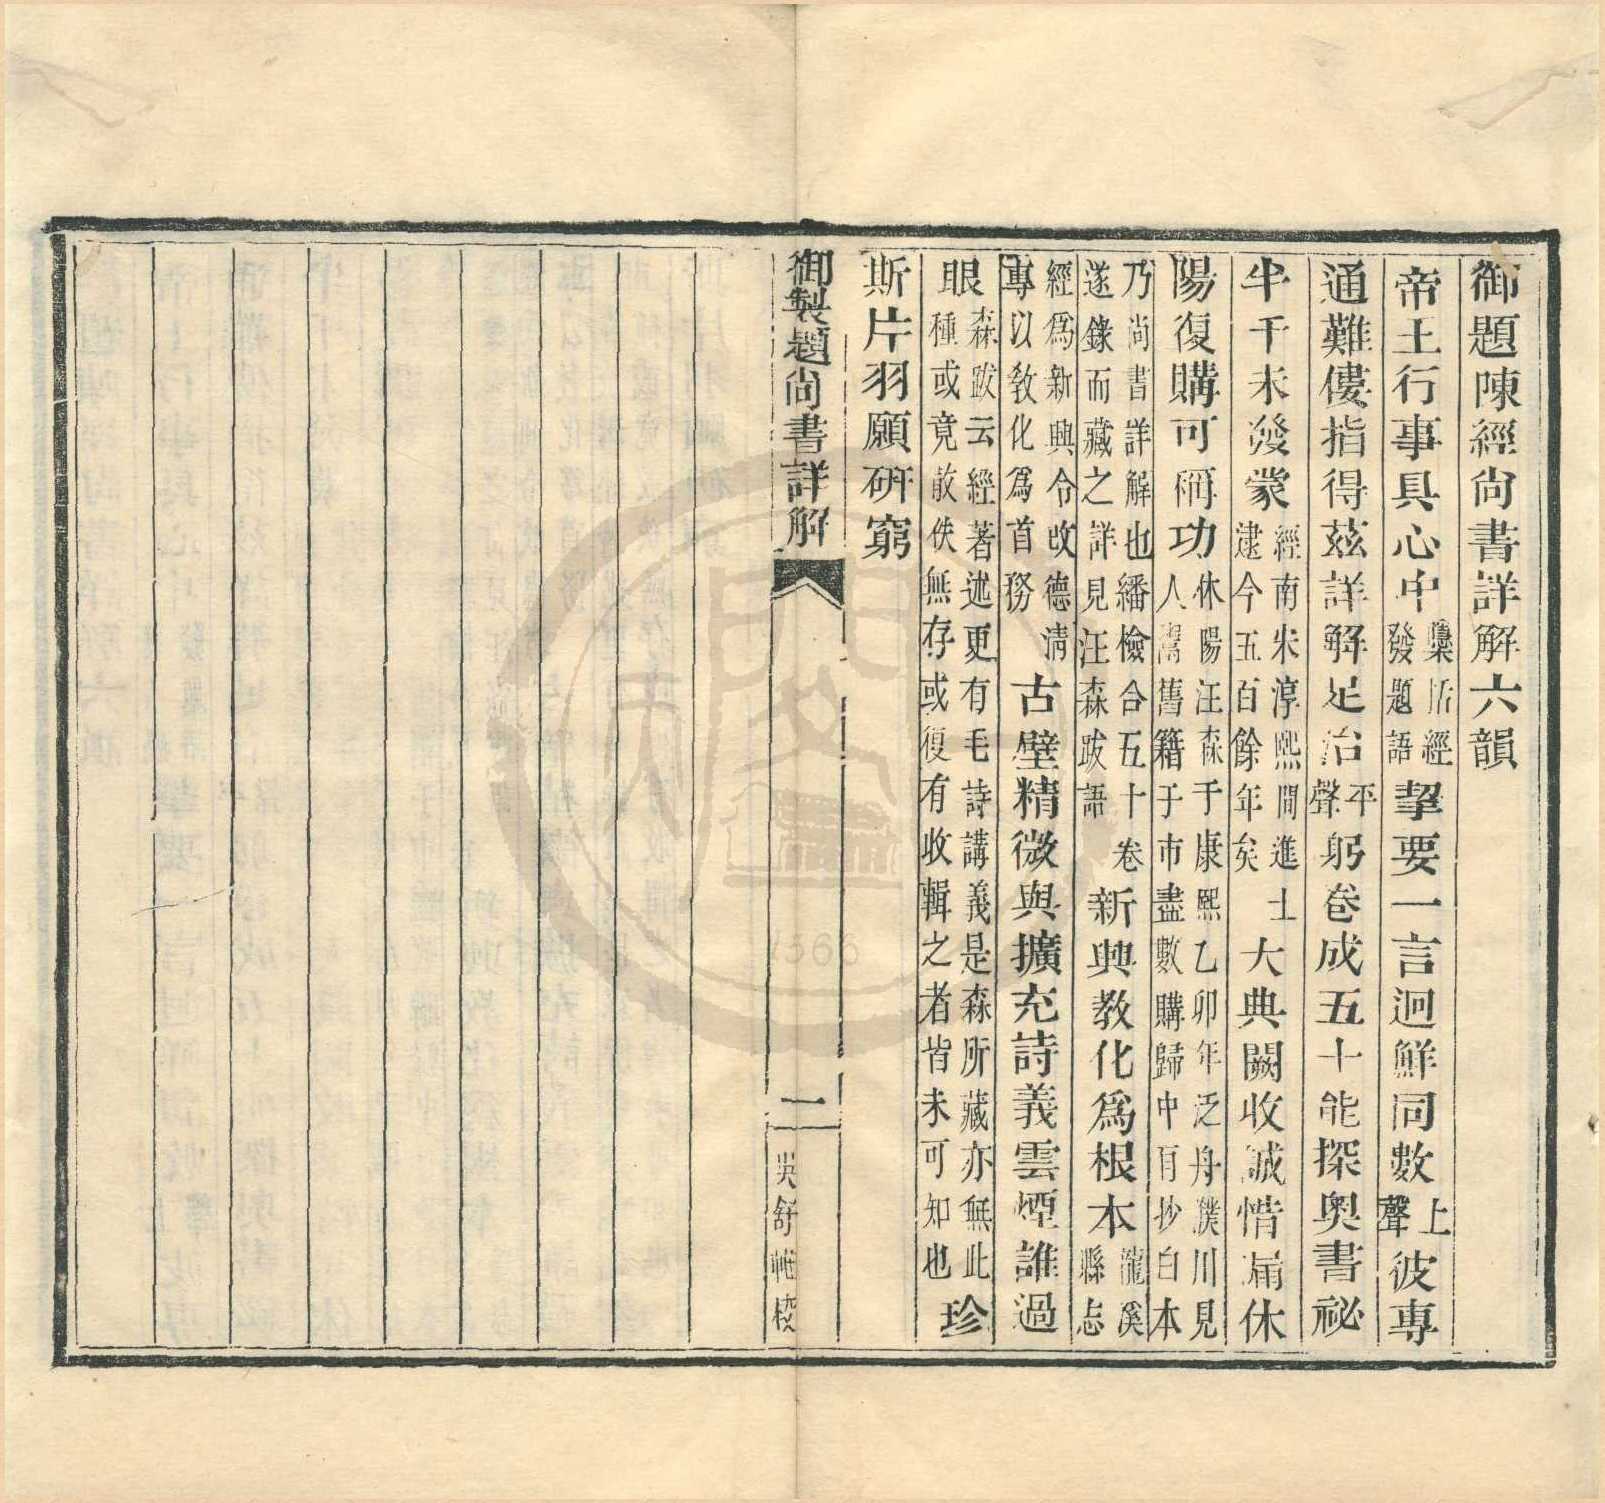 御題陳經尚書詳解六韻
帝王行事具心中櫽括經發題語挈要一言迥鮮同數上聲彼專
通難僂指得茲詳解足治平聲躬卷成五十能探奥書祕
半千未發蒙經南宋淳熙間進士逮今五百餘年矣大典闕收誠惜漏休
陽復購可稱功休陽汪森于康熙乙卯年泛舟濮川見人鬻舊籍于市盡數購歸中有抄白本
乃尚書詳解也繙檢合五十卷遂錄而藏之詳見汪森跋語新興教化為根本龍溪縣志
經為新興令改德清專以敎化為首務古壁精微與擴充詩義雲煙誰過
眼森跋云經著述更有毛詩講義是森所藏亦無此種或竟散佚無存或復有收輯之者皆未可知也珍
斯片羽願研窮
御製題尚書詳解
一
吳舒帷校